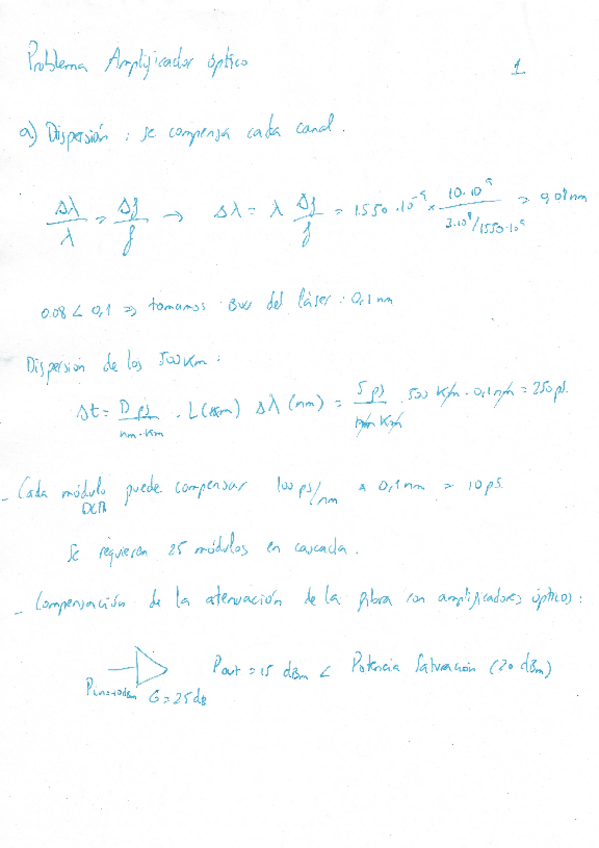 Problema Amplificador óptico
1
a) Dispersión : se compensa cada canal.
Δλ/λ = Δf/f → Δλ = λ Δf/f = 1550·10⁻⁹ × 10·10⁹ / (3·10⁸/1550·10⁹) = 0,08 nm
0.08 < 0,1 ⇒ tomamos BW del láser : 0,1 nm
Dispersión de los 500 Km :
Δt = D ps/nm·km · L(Km) Δλ (nm) = 5 ps/nm Km · 500 Km · 0,1 nm = 250 ps.
- Cada módulo puede compensar 100 ps/nm × 0,1 nm = 10 ps.
DCM
Se requieren 25 módulos en cascada.
- Compensación de la atenuación de la fibra con amplificadores ópticos :
Pout = 15 dBm < Potencia Saturación (20 dBm)
Pin=-10dBm G = 25 dB